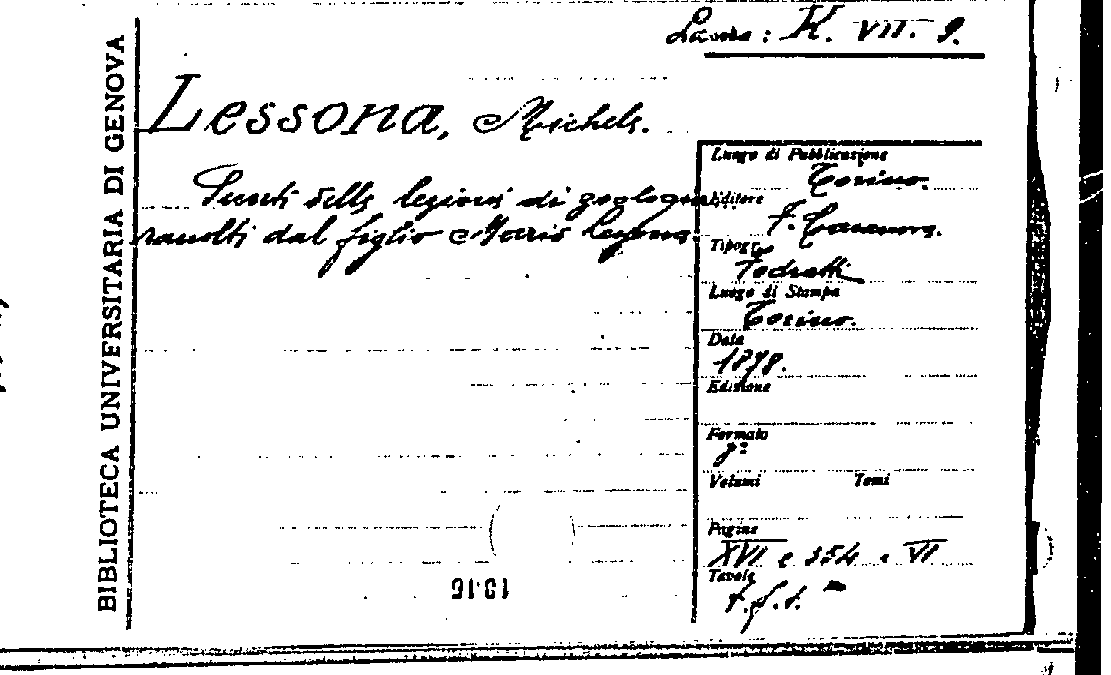 Laura: K. VII. 9.
BIBLIOTECA UNIVERSITARIA DI GENOVA
Lessona, Michele.
Sunti delle lezioni di zoologia
raccolti dal figlio Mario Lessona.
Luogo di Pubblicazione
Torino.
Editore
F. Casanova.
Tipogr.
Fodratti
Luogo di Stampa
Torino.
Data
1898.
Edizione
Formato
8º
Volumi Tomi
Pagine
XVI e 354 e VI
Tavole
f.f.t.
1916